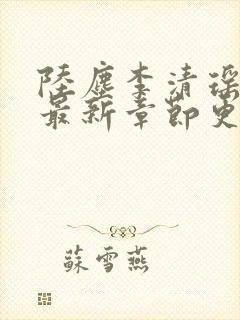 陸塵李清瑤
最新章節更
蘇雪燕